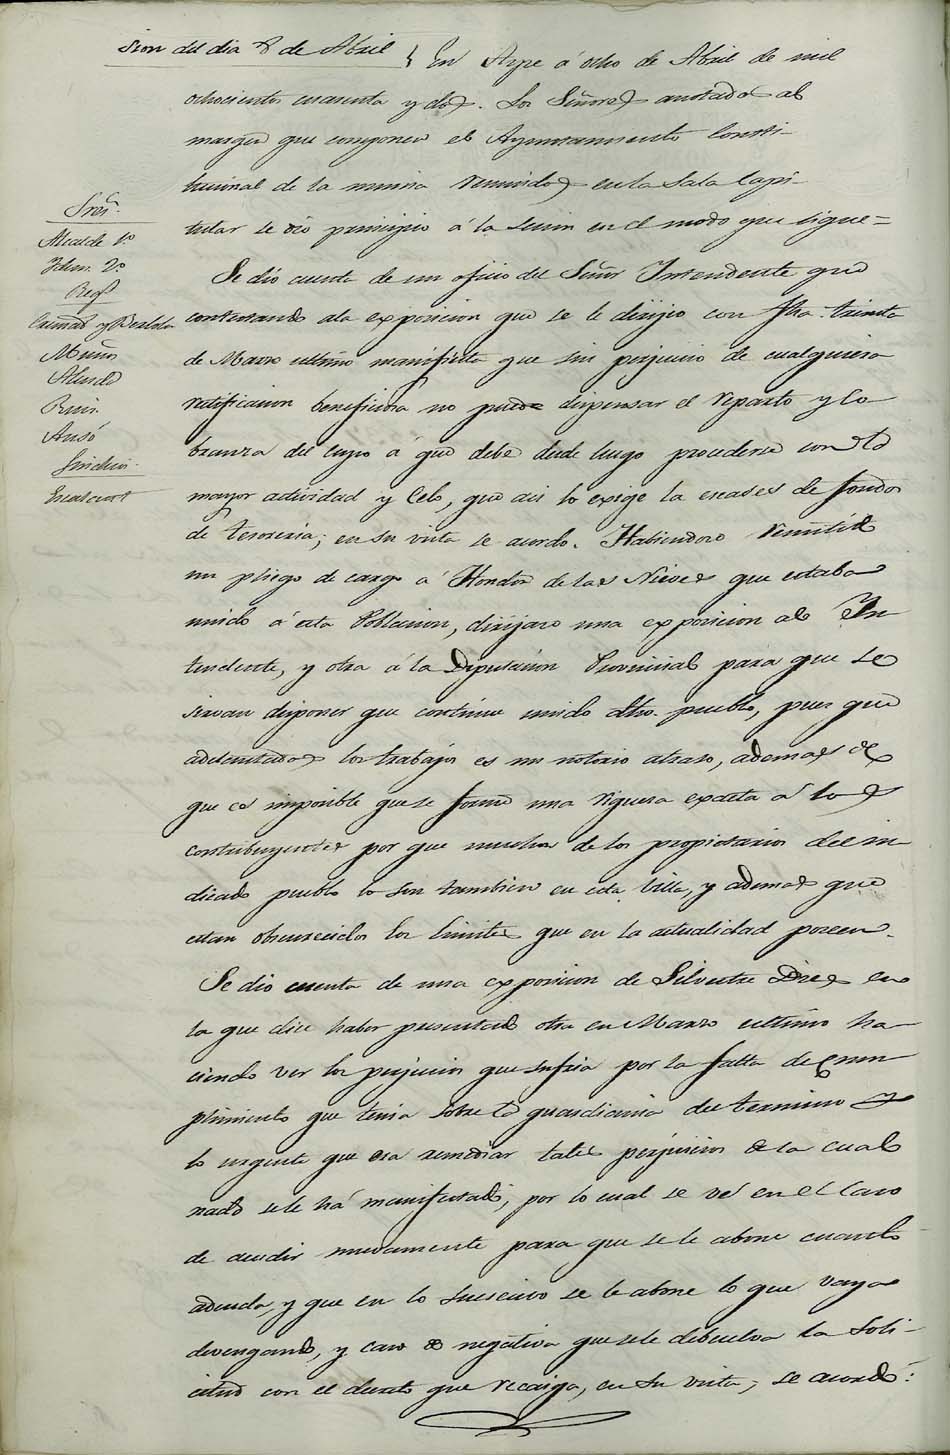 sion del dia 8 de Abril } En Aspe á ocho de Abril de mil
ochocientos cuarenta y dos. Los Señores anotados al
margen que componen el Ayuntamiento Consti-
tucional de la misma reunidos en la Sala Capi-
tular se dió principio á la sesion en el modo que sigue=
Sres.
Alcalde 1.º
Idem. 2.º
Reg.s
y
Muñoz
Ruiz.
Ansó
Sindico.
Se dió cuenta de un oficio del Señor Intendente que
contestando ala exposicion que se le dirijio con fha. treinta
de Marzo ultimo manifiesta que sin perjuicio de cualquiera
ratificacion beneficiosa no puede dispensar el reparto y Co-
branza del cupo á que debe desde luego procederse con la
mayor actividad y Celo, que asi lo exige la escases de fondos
de tesoreria; en su vista se acordo. Habiendose remitido
un pliego de cargo á Hondon de las Nieves que estaba
unido á esta Poblacion, dirijase una exposicion al In-
tendente, y otra á la Diputacion Provincial para que se
sirvan disponer que continue unido dho. pueblo, pues que
adelantados los trabajos es un notorio atraso, ademas de
que es imposible que se forme una riguroza exacta á los
contribuyentes por que muchos de los propietarios del in-
dicado pueblo lo son tambien en esta Villa, y ademas que
estan obscurecidos los limites que en la actualidad poseen.
Se dió cuenta de una exposicion de Silvestre Diez en
la que dice haber presentado otra en Marzo ultimo ha-
ciendo ver los perjuicios que sufria por la falta de Cum-
plimiento que tenia sobre la guardiania del termino y
lo urgente que era remediar tales perjuicios de la cual
nada sele há manifestado, por lo cual se vé en el Caso
de acudir nuevamente para que se le abone cuanto
adeuda, y que en lo sucesivo se le abone lo que vaya
devengando, y caso de negativa que sele debuelva la Soli-
citud con el decreto que recaiga, en su vista, se acordó: